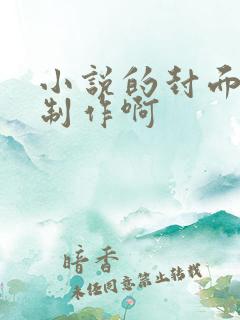 小说的封面
制作啊
暗香
未经同意禁止转载